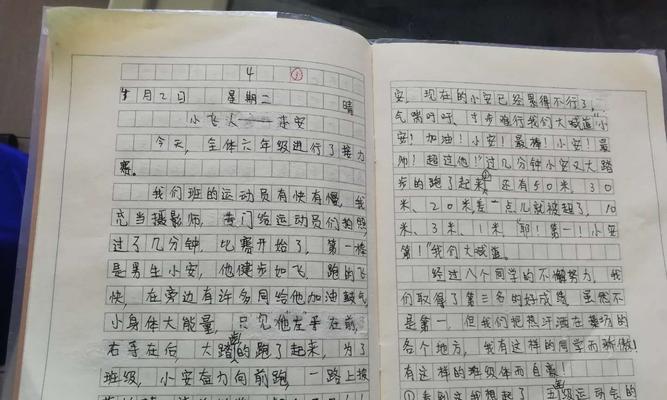 4 ①
月2日 星期二 晴
小飞人——李安
今天，全体六年级进行了接力
赛。
我们班的运动员有快有慢，我
充当摄影师，专门给运动员们拍照，
过了几分钟，比赛开始了，第一棒
是男生小安，他健步如飞，跑的飞
快，在旁边有许多同给他加油鼓气
小身体大能量，只见他左手在前，
右手在后，大踏的跑了起来，为了
班级，小安奋力向前跑，一路上披
安，现在的小安已经累得不行了，
气喘吁吁，寸步难行我们大喊道"小
安！加油！小安！最棒！小安！最
帅！超过他！"过几分钟小安又大踏
步的跑了起来，还有50米、30
米、20米差一点儿就被超了，10
米、3米、1米，"耶！第一！小安
第！"我们大喊道。
经过八个同学的不懈努力，我
们取得了第三名的好成绩，虽然不
是第一，但我们把热汗洒在操场的
各个地方，我有这样的同学而骄傲！
有这样的班级体而自豪！
①看到这我想起了 五级运动会的